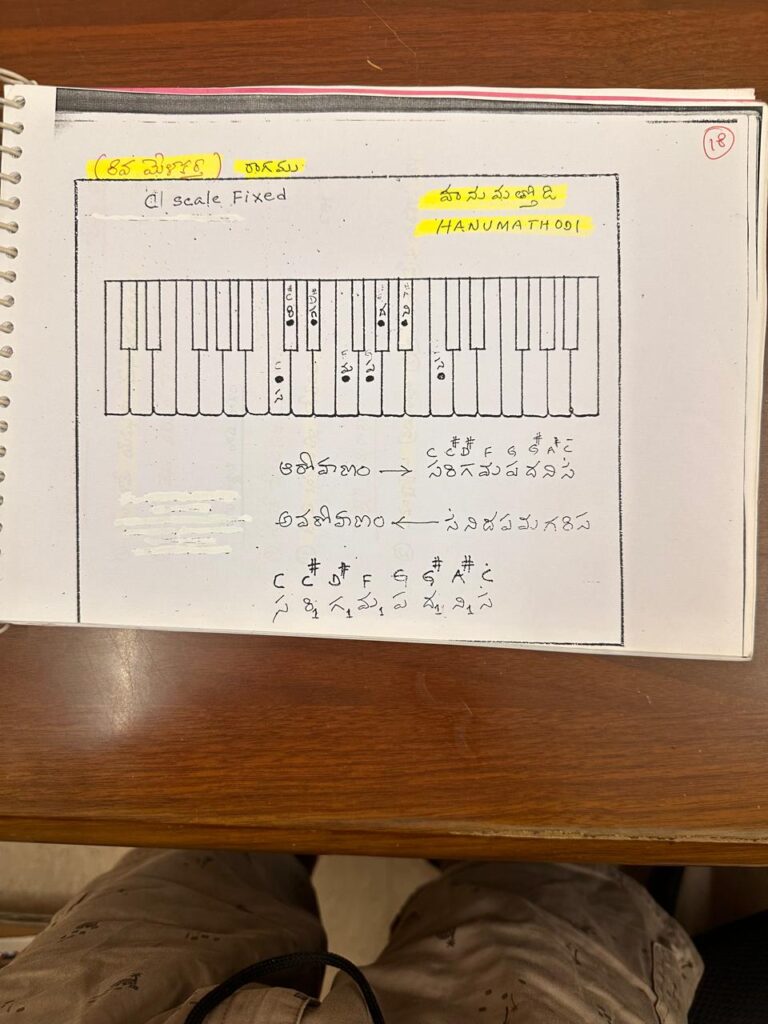 18
(8వ మేళకర్త) రాగము
C| scale Fixed
హనుమత్తోడి
HANUMATHODI
C# D#
రి గ ద ని
స మ ప స
C C# D# F G G# A# Ċ
ఆరోహణం → స రి గ మ ప ద ని స
అవరోహణం ← స ని ద ప మ గ రి స
C C# D# F G G# A# Ċ
స రి₁ గ₁ మ₁ ప ద₁ ని₁ స